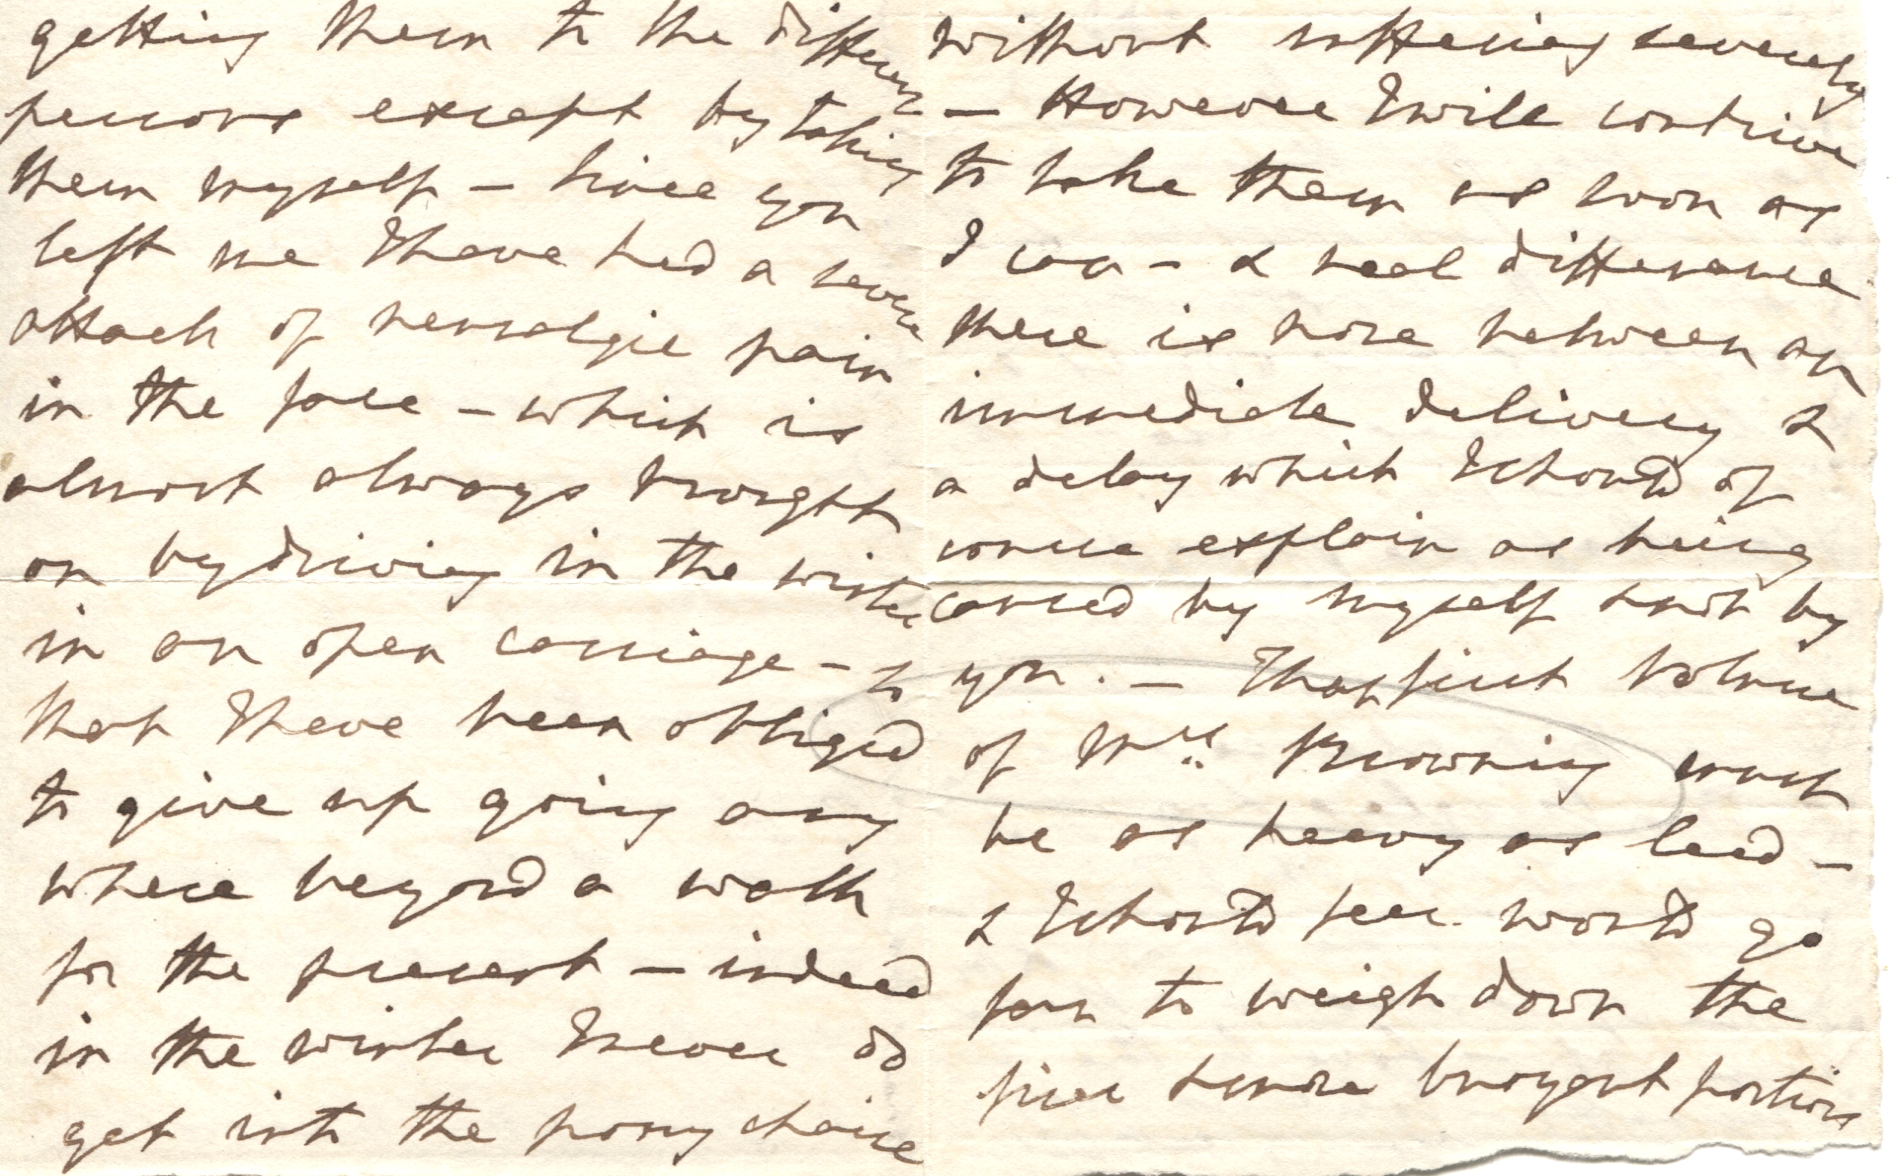 getting them to the different
persons except by taking
them myself – Since you
left me I have had a severe
attack of neuralgic pain
in the face – which is
almost always brought
on by driving in the winter
in an open carriage – so
that I have been obliged
to give up going any
where beyond a walk
for the present – indeed
in the winter I never do
get into the pony chaise
without suffering severely
– However I will contrive
to take them as soon as
I can – & real difference
there is none between an
immediate delivery &
a delay which I should of
course explain as being
caused by myself & not by
you. – That first volume
of Mrs. Browning must
be as heavy as lead –
& I should fear would go
far to weigh down the
finer & more buoyant portions